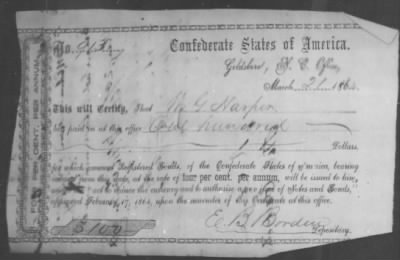 FOUR PER CENT. PER ANNUM
No.
Confederate States of America.
Goldsboro, N. C. Office,
March 21 1864.
This will Certify, That W. G. Harper
has paid in at this office One hundred
Dollars,
for which amount Registered Bonds, of the Confederate States of America, bearing
interest from this date, at the rate of four per cent. per annum, will be issued to him,
under the "act to reduce the currency and to authorize a new issue of Notes and Bonds,"
approved February 17, 1864, upon the surrender of this Certificate at this office.
$100
E. B. Borden
Depositary.